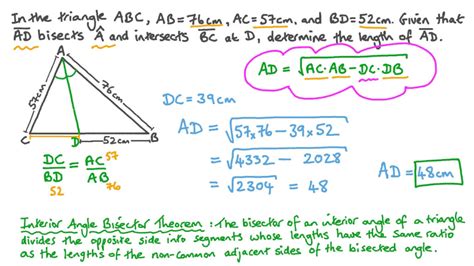 In the triangle ABC, AB=76cm, AC=57cm, and BD=52cm. Given that
AD bisects Â and intersects BC at D, determine the length of AD.
AD = √AC·AB-DC·DB
DC = 39cm
A
57cm
76cm
C
D
52cm
B
AD = √57×76-39×52
= √4332 - 2028
= √2304 = 48
AD = 48cm
DC/BD = AC/AB
57
52
76
Interior Angle Bisector Theorem: The bisector of an interior angle of a triangle
divides the opposite side into segments whose lengths have the same ratio
as the lengths of the non-common adjacent sides of the bisected angle.